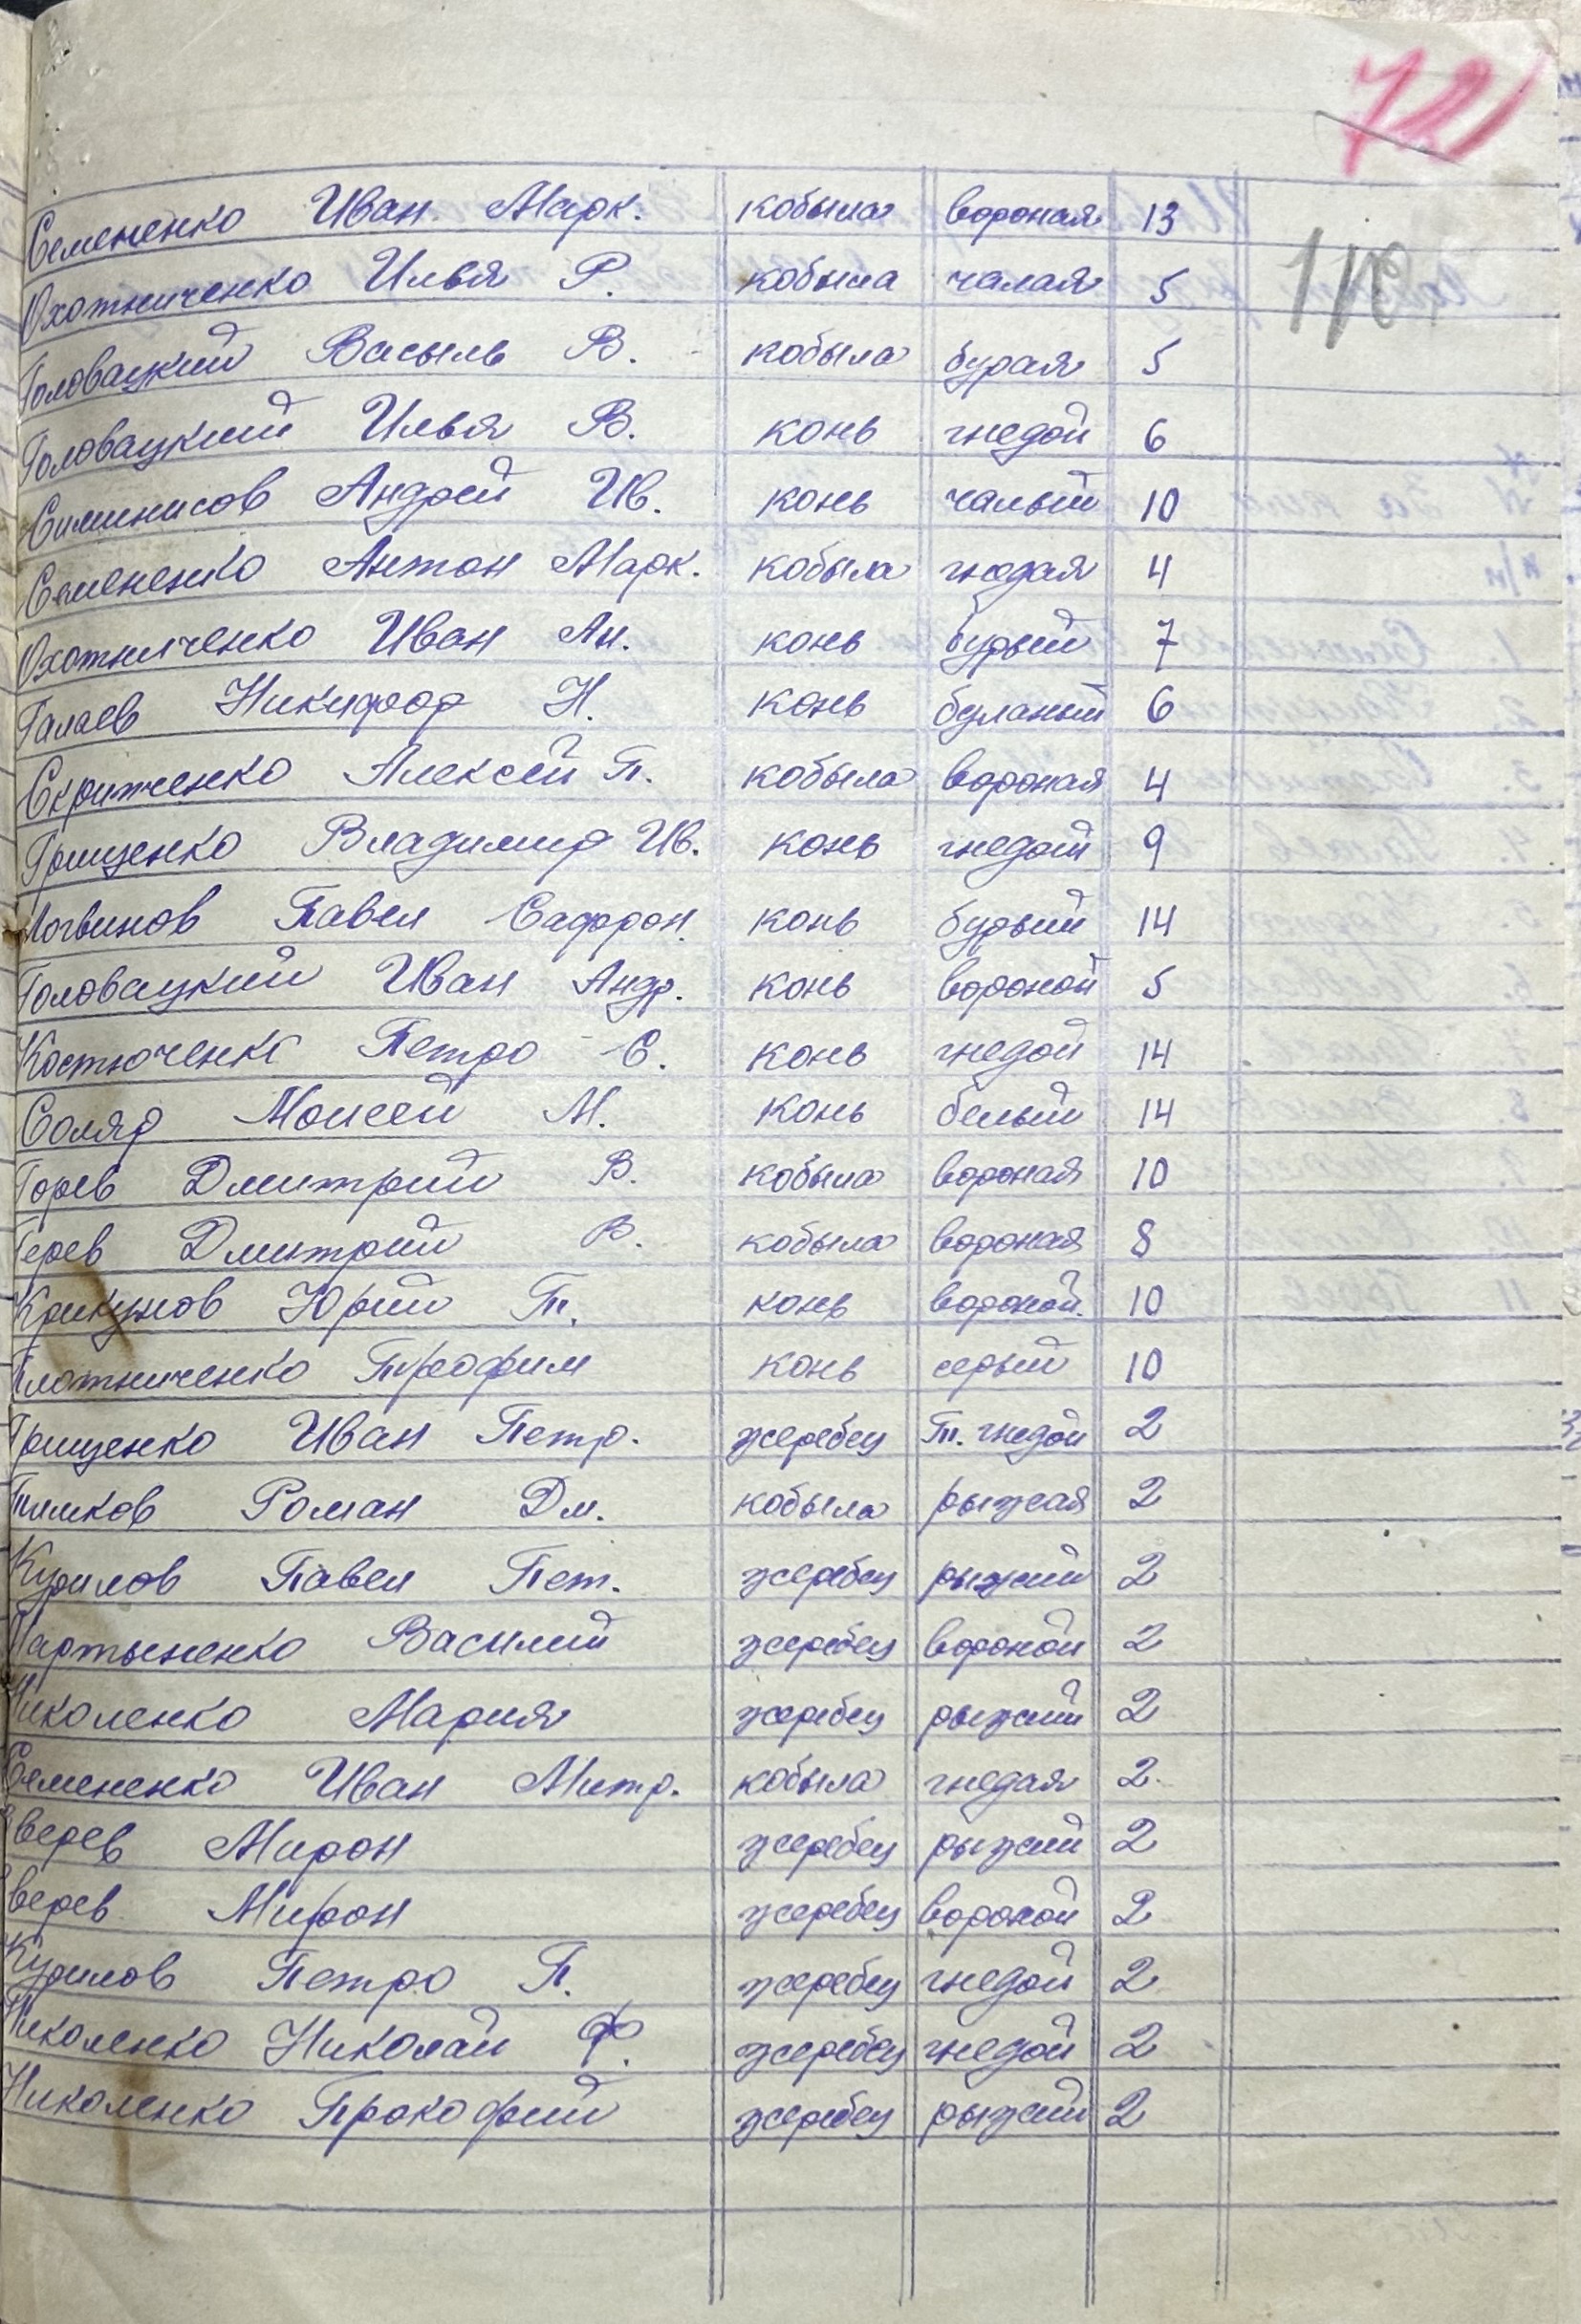 72
110
Семененко Иван Марк. кобыла вороная 13
Охотниченко Илья Р. кобыла чалая 5
Головацкий Васыль В. кобыла бурая 5
Головацкий Илья В. конь гнедой 6
Симинисов Андрей Ив. конь чалый 10
Семененко Антон Марк. кобыла гнедая 4
Охотниченко Иван Ан. конь бурый 7
Галаев Никифор Н. конь буланый 6
Скрипченко Алексей П. кобыла вороная 4
Грищенко Владимир Ив. конь гнедой 9
Логвинов Павел Сафрон. конь бурый 14
Головацкий Иван Андр. конь вороной 5
Костюченко Петро С. конь гнедой 14
Соляр Моисей М. конь белый 14
Горев Дмитрий В. кобыла вороная 10
Герев Дмитрий В. кобыла вороная 8
Крикунов Юрий Т. конь вороной. 10
Плотниченко Трофим конь серый 10
Грищенко Иван Петр. жеребец Т. гнедой 2
Роман Дм. кобыла рыжая 2
Курилов Павел Пет. жеребец рыжий 2
Мартыненко Василий жеребец вороной 2
Николенко Мария жеребец рыжий 2
Семененко Иван Митр. кобыла гнедая 2
Зверев Мирон жеребец рыжий 2
Зверев Мирон жеребец вороной 2
Курилов Петро П. жеребец гнедой 2
Николенко Николай Ф. жеребец гнедой 2
Николенко Прокофий жеребец рыжий 2